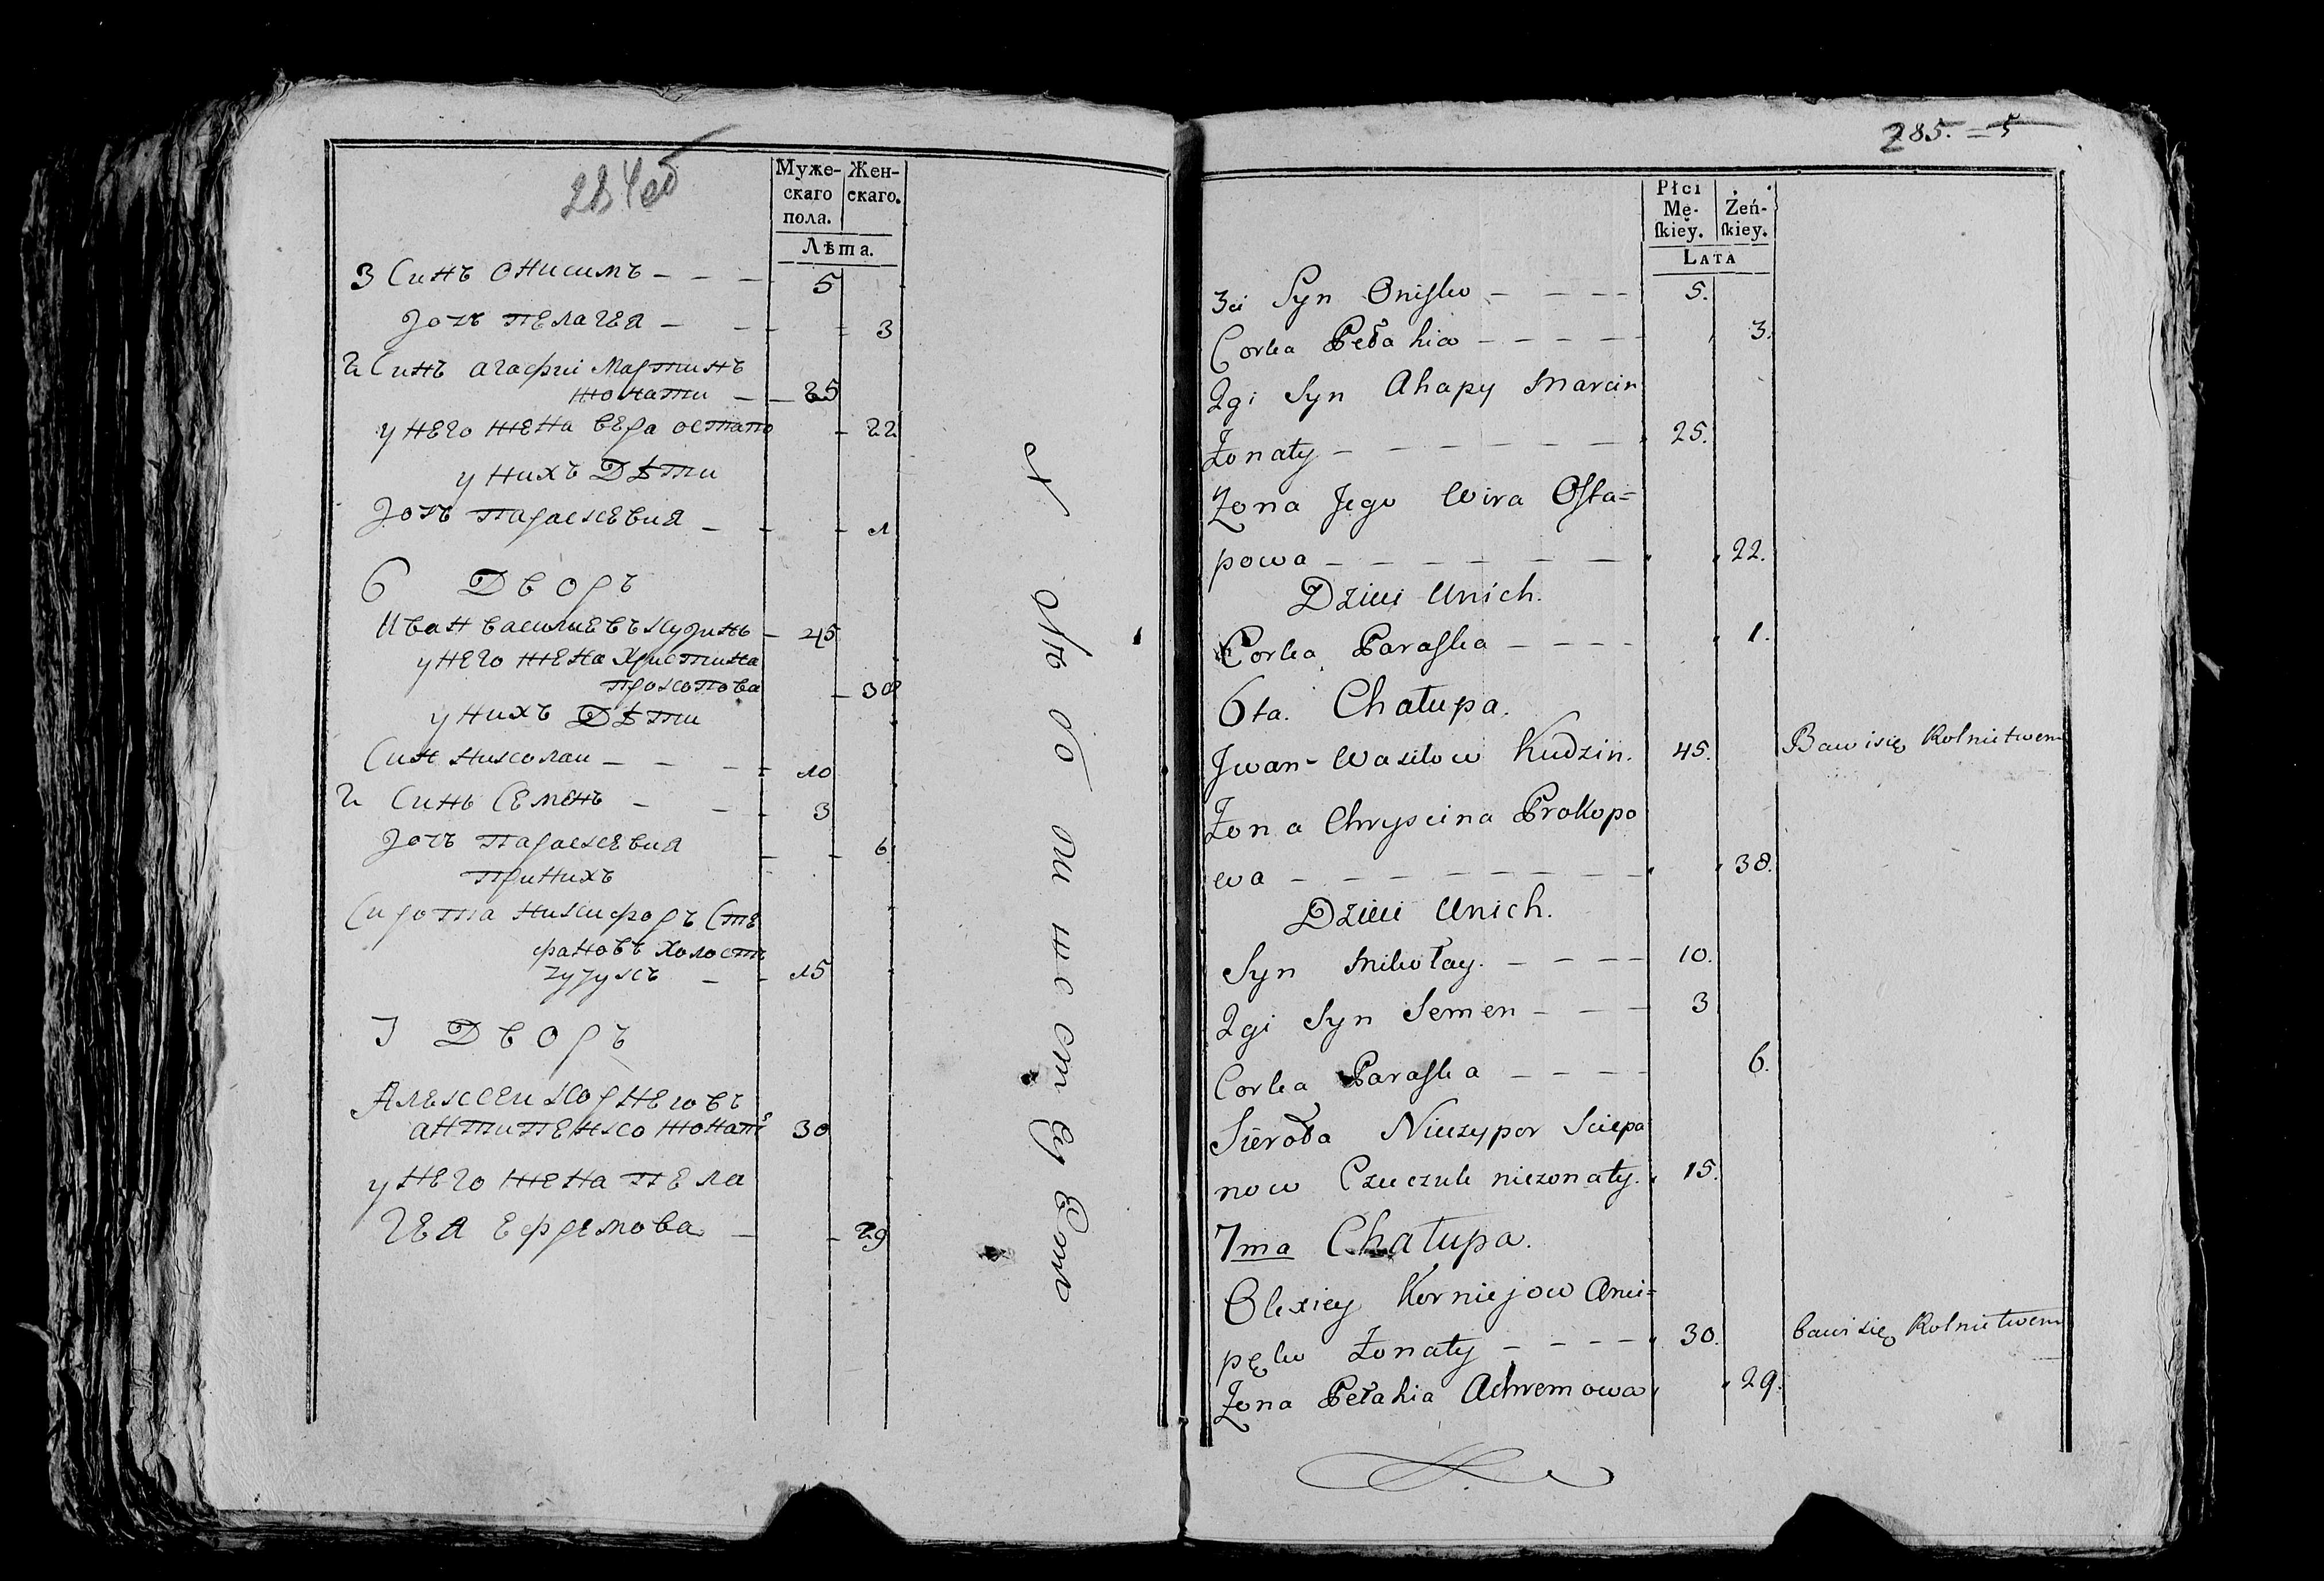 284об
Муже-
скаго
пола.
Жен-
скаго.
Лѣта.
3 Синъ Онисимъ — — — 5
Дочъ Пелагея — — 3
2 Синъ Агафіи Мартинъ
жонати — — 25
у него жена Вера Остапо — 22
у нихъ Дѣти
Дочъ Параскевия — — — 1
6 Дворъ
Иван Василиевъ Кудинъ — 45
у него жена Христина
Прокопова — 38
у нихъ Дѣти
Син Николаи — — — 10
2 Синъ Семенъ — — 3
Дочъ Параскевия — — 6
При нихъ
Сирота Никифоръ Сте
фановъ Холостъ
— — 15
7 Дворъ
Алексеи Корнеювъ
Антипенко жонатi 30
у него жена Пела
гея Ефремова — — 29
285. = 5
Płci
Mę-
ſkiey.
Żeń-
ſkiey.
LATA
3ci Syn Oniſko — — — 5.
Corka Pełahia — — — — 3.
2gi Syn Ahapy Marcin
Żonaty — — — — — 25.
Żona Jego Wira Oſta=
powa — — — — — — 22.
Dzieci Unich.
Corka Paraſka — — — — 1.
6ta. Chałupa.
Jwan- Wasilow Kudzin. 45. Bawi się Rolnictwem
Żona Chryscina Prokopo
wa — — — — — — — 38.
Dzieci Unich.
Syn Mikołay. — — — — 10.
2gi Syn Semen — — — 3
Corka Paraſka — — — — 6.
Sierota Niczypor Sciepa
now niezonaty. 15.
7ma Chałupa.
Olexiey Korniejow Anci=
pęko Żonaty — — — — 30. bawi się Rolnictwem
Żona Pełahia Achremowa 29.